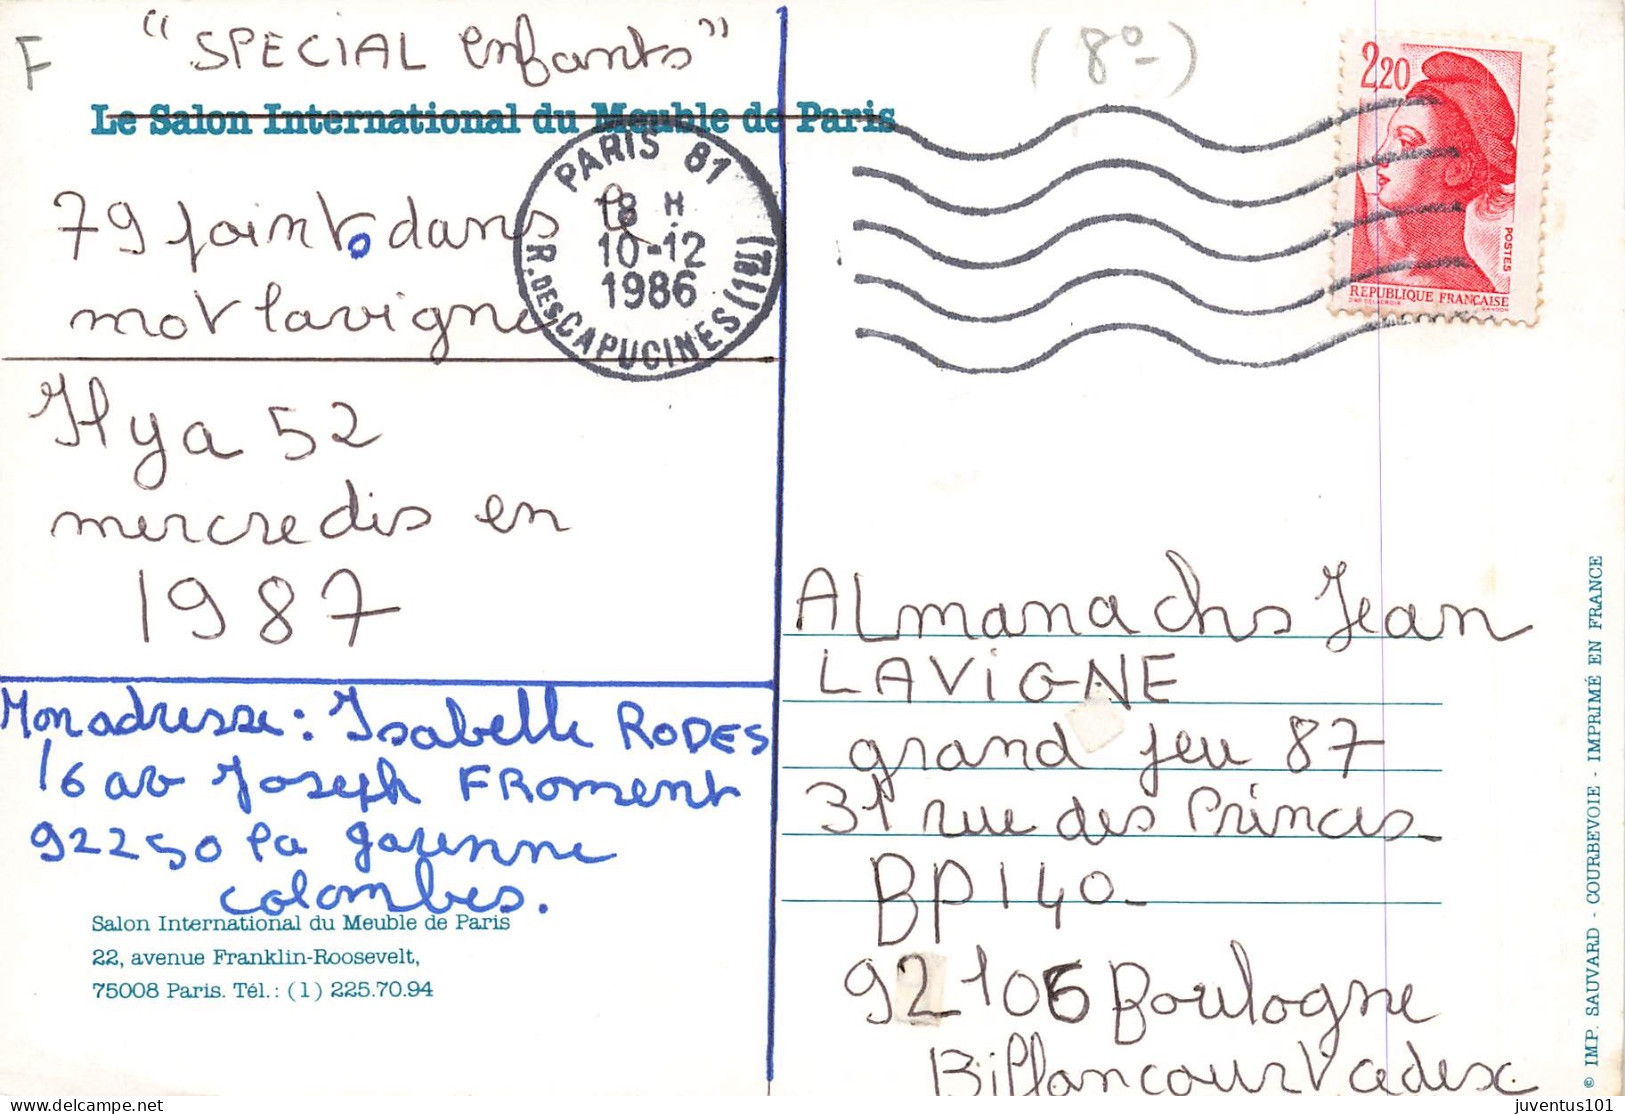 F
"SPECIAL enfants"
(8º-)
Le Salon International du Meuble de Paris
79 points dans le
mot lavigne
PARIS 81
18 H
10-12
1986
R. DES CAPUCINES
2,20
POSTES
REPUBLIQUE FRANCAISE
Il y a 52
mercredis en
1987
Mon adresse: Isabelle RODES
16 av Joseph FROMENT
92250 la garenne
colombes.
Salon International du Meuble de Paris
22, avenue Franklin-Roosevelt,
75008 Paris. Tél.: (1) 225.70.94
ALmanachs Jean
LAVIGNE
grand jeu 87
31 rue des Princes
BP 140-
92106 Boulogne
Billancourt Cedex
© IMP. SAUVARD - COURBEVOIE - IMPRIMÉ EN FRANCE
juventus101